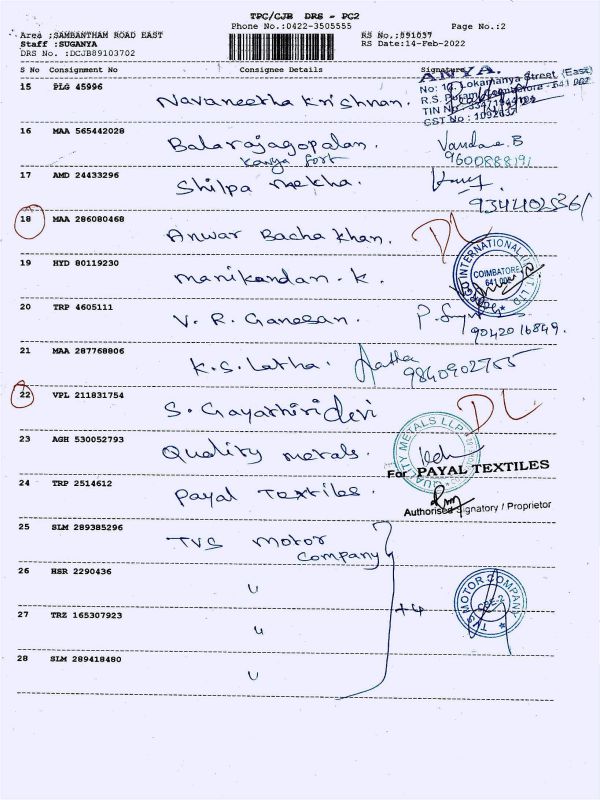 TPC/CJB DRS - PC2
Phone No.:0422-3505555 Page No.:2
Area :SAMBANTHAM ROAD EAST RS No.:891037
Staff :SUGANYA RS Date:14-Feb-2022
DRS No. :DCJB89103702
S No Consignment No Consignee Details Signature
ANYA.
No: 10, Lokamanya Street (East)
R.S. Puram, Coimbatore - 641 002
TIN No
CST No : 1092637
15 PLG 45996 Navaneetha Krishnan.
16 MAA 565442028 Balarajagopalan. Vandana B
Kanya fort 9600888191
17 AMD 24433296 Shilpa mekha.
9344402536
18 MAA 286080468 Anwar Bacha khan. DL
INTERNATIONAL
COIMBATORE
641 002
19 HYD 80119230 manikandan. K.
20 TRP 4605111 V. R. Ganesan.
9042016849.
21 MAA 287768806 K.S. Latha. Latha
9840902755
22 VPL 211831754 S. Gayathiri devi DL
23 AGH 530052793 Quality metals.
QUALITY METALS LLP
For PAYAL TEXTILES
24 TRP 2514612 Payal Textiles.
Authorised Signatory / Proprietor
25 SLM 289385296 TVS motor
company
26 HSR 2290436 "
27 TRZ 165307923 " +4
TVS MOTOR COMPANY
CBE-2
28 SLM 289418480 "